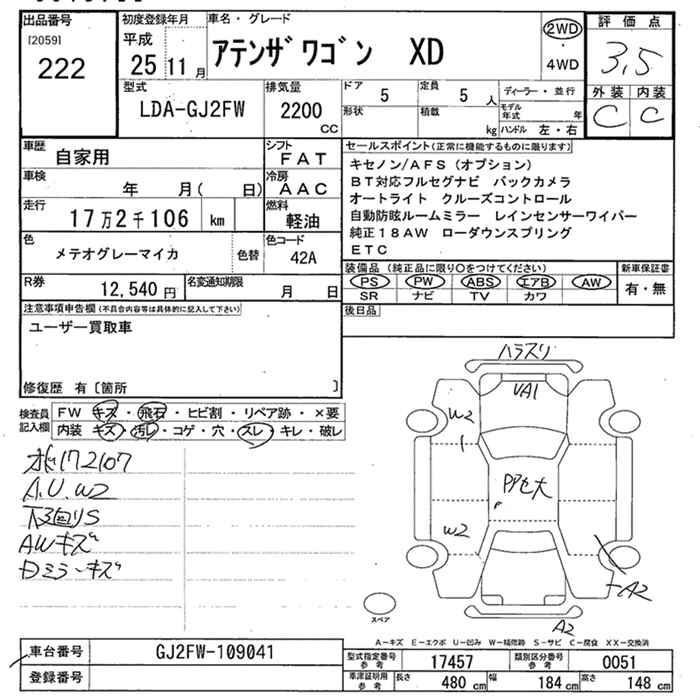 出品番号
[2059]
222
初度登録年月
平成
25 11 月
車名・グレード
アテンザ ワゴン XD
2WD
4WD
評価点
3,5
外装 内装
C C
型式
LDA-GJ2FW
排気量
2200
cc
ドア 5
定員 5 人
ディーラー・並行
形状
積載 kg
モデル年式 年
ハンドル 左・右
車歴
自家用
シフト
FAT
車検
年 月( 日)
冷房
AAC
走行
17万2千106 km
燃料
軽油
色
メテオグレーマイカ
色替
色コード
42A
R券
12,540 円
名変通知期限
月 日
セールスポイント(正常に機能するものに限ります)
キセノン/AFS(オプション)
BT対応フルセグナビ バックカメラ
オートライト クルーズコントロール
自動防眩ルームミラー レインセンサーワイパー
純正18AW ローダウンスプリング
ETC
装備品(純正品に限り○をつけてください)
PS PW ABS エアB AW
SR ナビ TV カワ
新車保証書
有・無
後日品
注意事項申告欄(不具合内容等は具体的に記入して下さい)
ユーザー買取車
修復歴 有〔箇所 〕
検査員記入欄
FW キズ・飛石・ヒビ割・リペア跡・×要
内装 キズ・汚レ・コゲ・穴・スレ・キレ・破レ
172107
A.U.W2
下回りS
AWキズ
Dミラーキズ
ハラスリ
UA1
W2
PPセ大
P
W2
A2
A2
スペア
A-キズ E-エクボ U-凹み W-補修跡 S-サビ C-腐食 XX-交換済
車台番号
GJ2FW-109041
登録番号
型式指定番号
参考
17457
類別区分番号
参考
0051
車庫証明用
参考
長さ 480 cm
幅 184 cm
高さ 148 cm